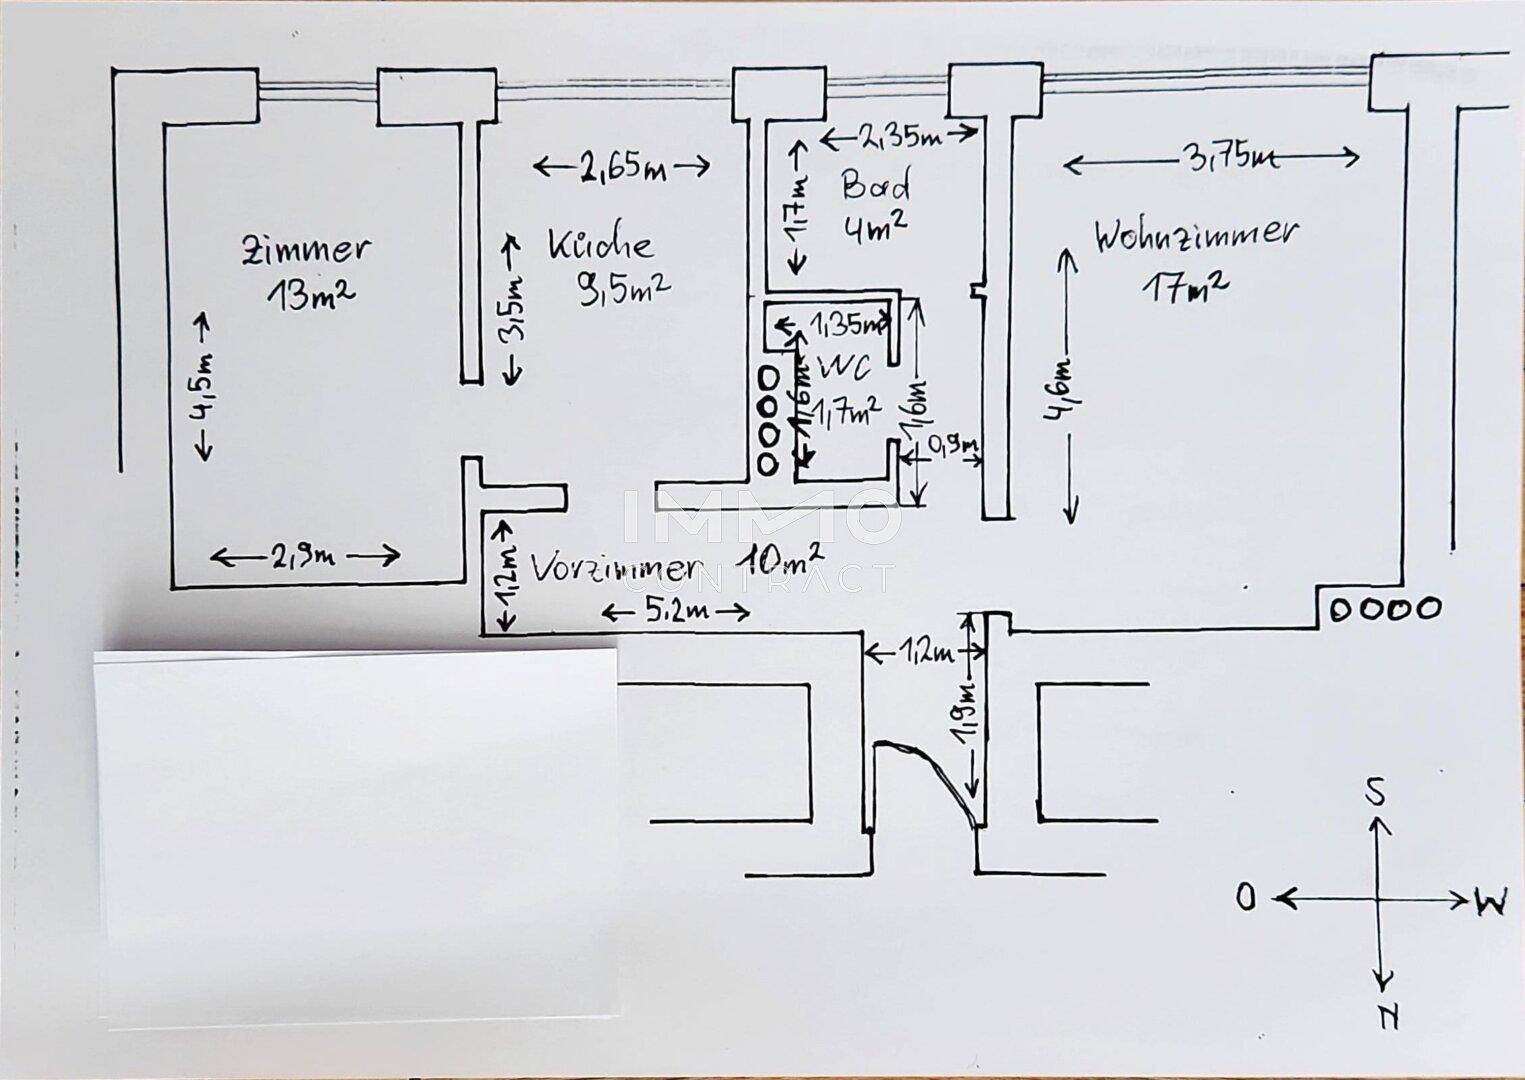 2,35m
2,65m
3,75m
1,7m
Bad
4m²
Zimmer
13m²
Küche
9,5m²
Wohnzimmer
17m²
3,5m
1,35m
WC
1,7m²
1,6m
1,6m
4,5m
4,6m
0,9m
IMMO
CONTRACT
2,9m
1,2m
Vorzimmer 10m²
5,2m
1,2m
1,9m
S
O
W
N